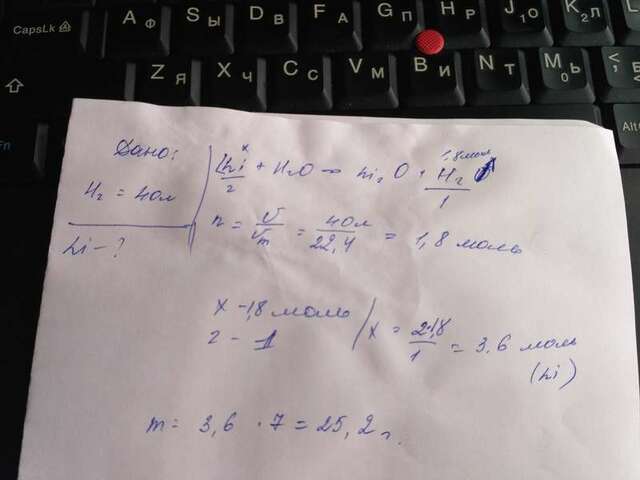 CapsLk A Ф S Ы D В F А G П H Р J О K Л L
Z Я X Ч C С V М B И N Т M Ь < Б
Fn Alt
Дано:
H₂ = 40л
Li - ?
x 1,8 моль
2Li + H₂O → Li₂O + H₂
2 1
n = V/Vm = 40л/22,4 = 1,8 моль
x - 1,8 моль
2 - 1
x = 2·1,8/1 = 3.6 моль
(Li)
m = 3,6 · 7 = 25,2 г.